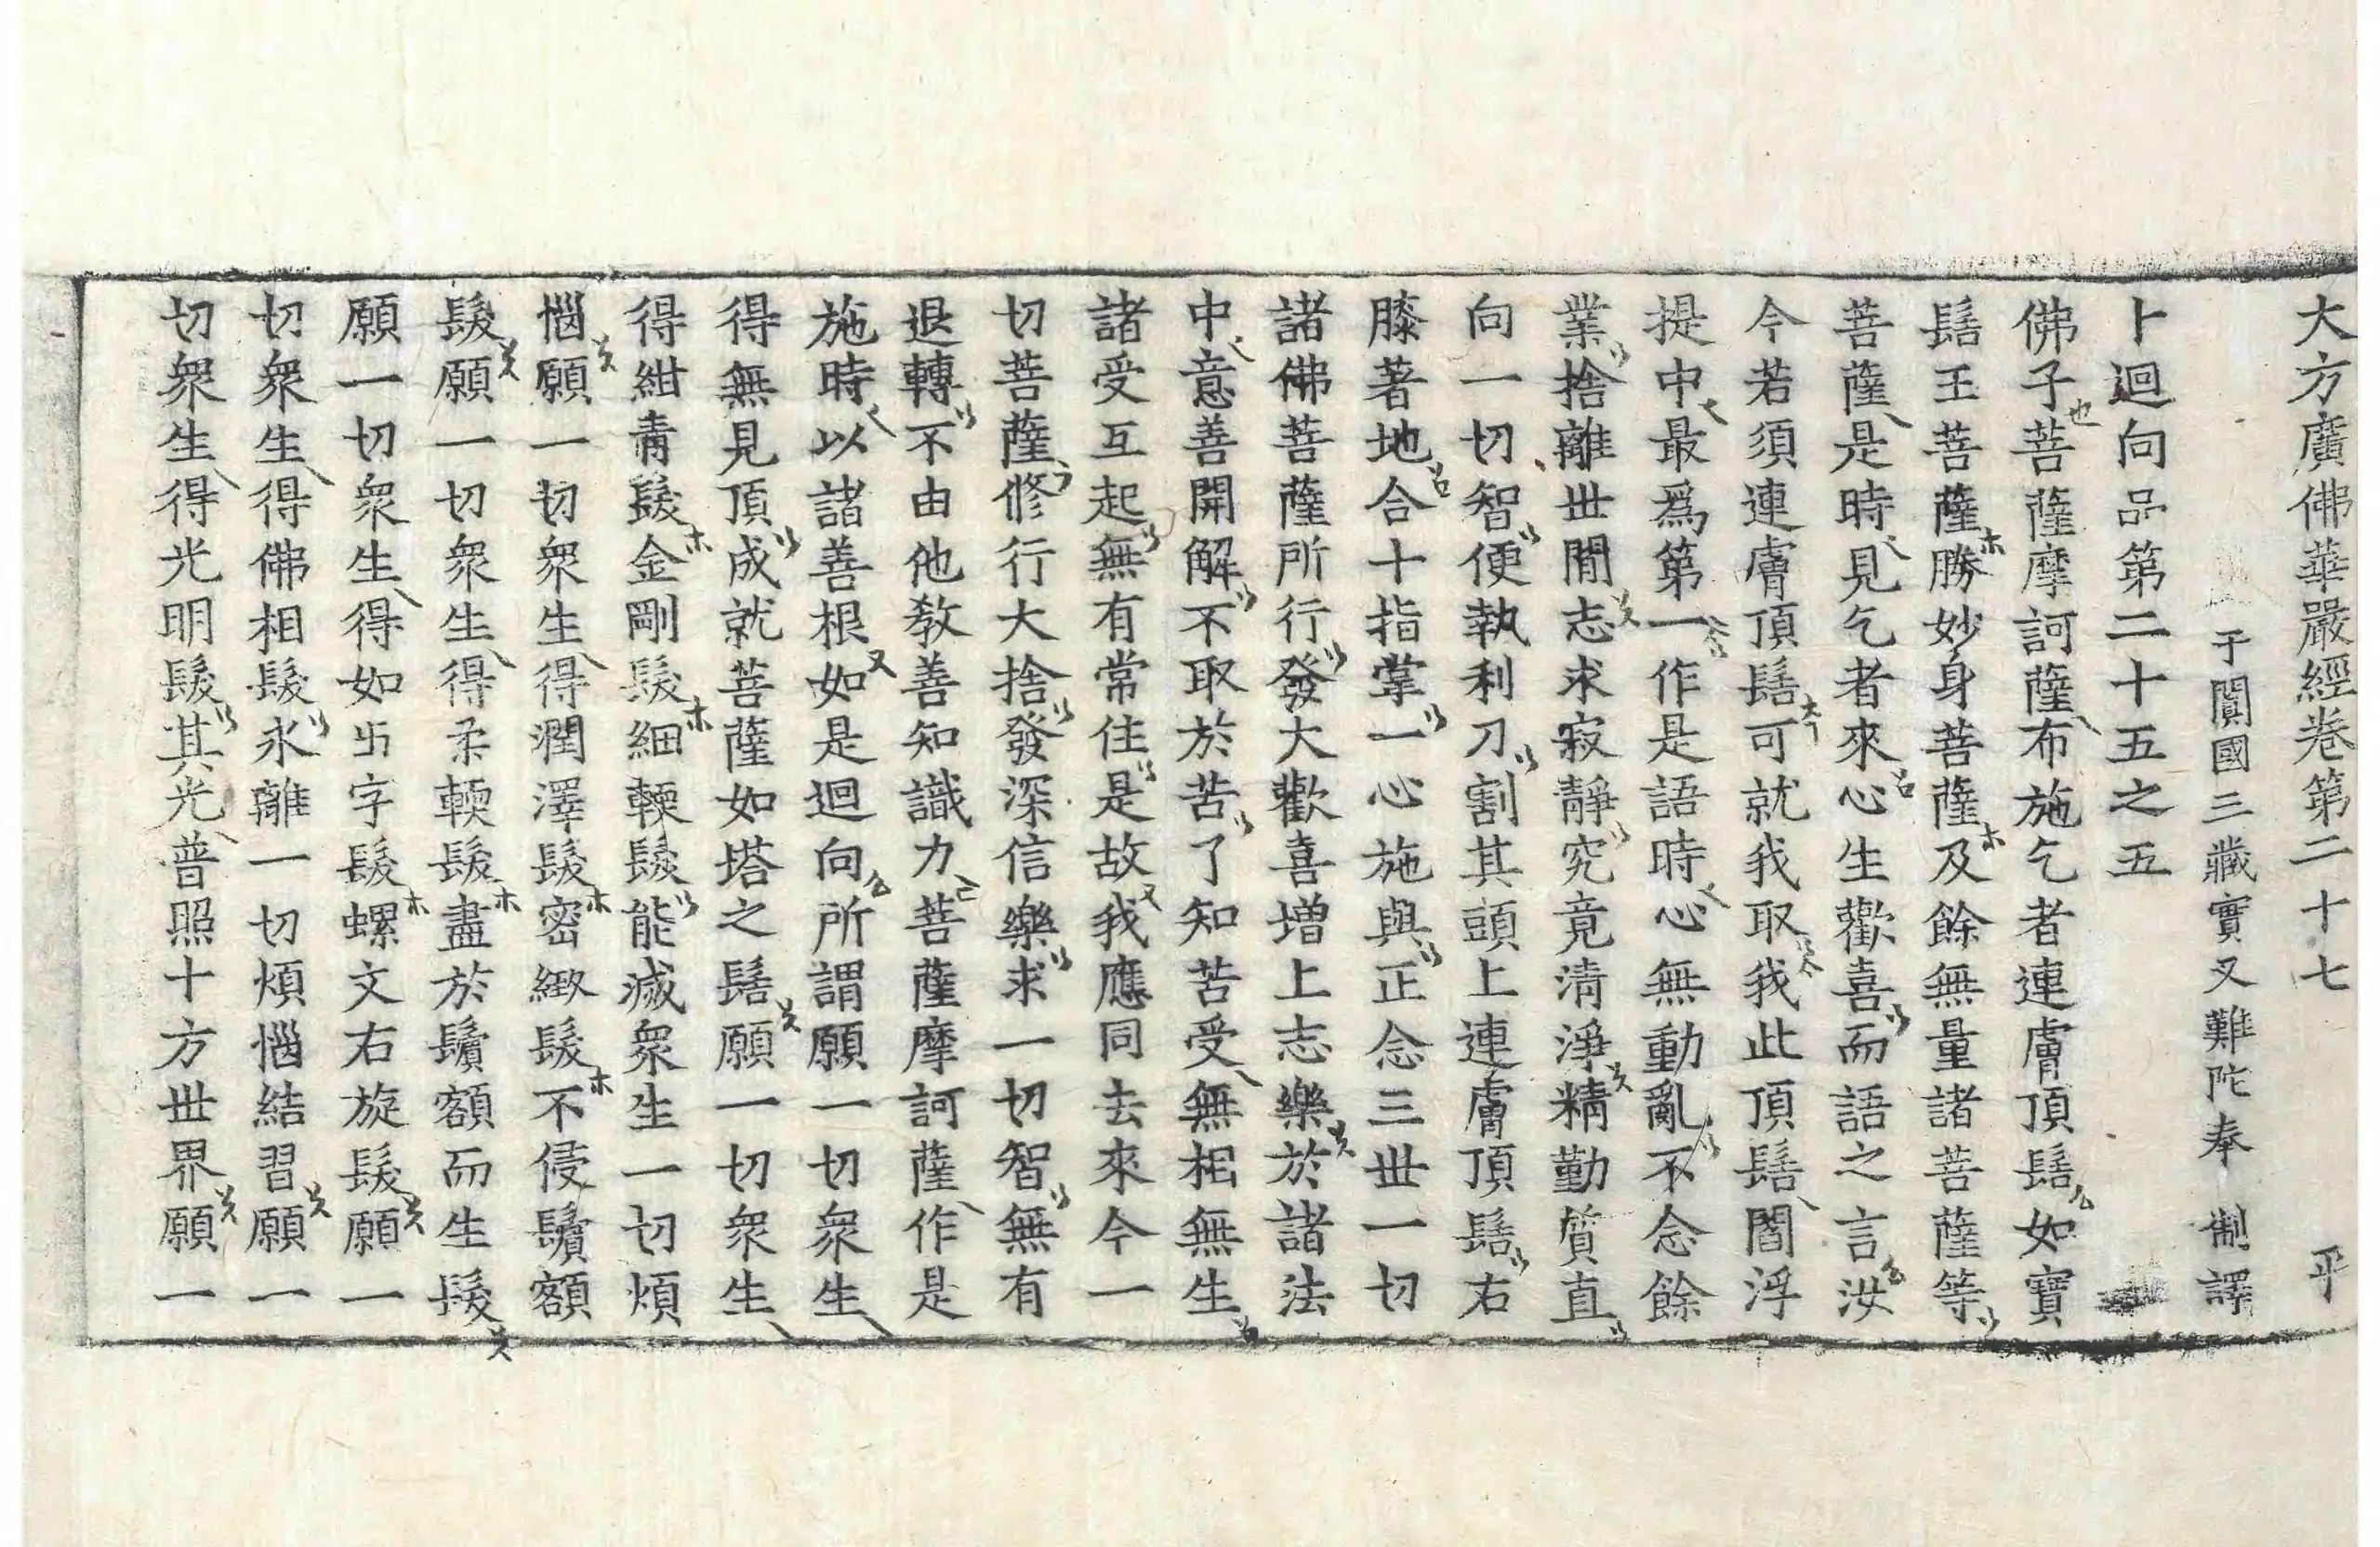 大方廣佛華嚴經卷第二十七 平
于闐國三藏實叉難陀奉 制譯
卜迴向品第二十五之五
佛子菩薩摩訶薩布施乞者連膚頂髻如寶
髻王菩薩勝妙身菩薩及餘無量諸菩薩等
菩薩是時見乞者來心生歡喜而語之言汝
今若須連膚頂髻可就我取我此頂髻閻浮
提中最爲第一作是語時心無動亂不念餘
業捨離世閒志求寂靜究竟清淨精勤質直
向一切智便執利刀割其頭上連膚頂髻右
膝著地合十指掌一心施與正念三世一切
諸佛菩薩所行發大歡喜增上志樂於諸法
中意善開解不取於苦了知苦受無相無生
諸受互起無有常住是故我應同去來今一
切菩薩修行大捨發深信樂求一切智無有
退轉不由他教善知識力菩薩摩訶薩作是
施時以諸善根如是迴向所謂願一切衆生
得無見頂成就菩薩如塔之髻願一切衆生
得紺青髮金剛髮細輭髮能滅衆生一切煩
惱願一切衆生得潤澤髮密緻髮不侵鬢額
髮願一切衆生得柔輭髮盡於鬢額而生髮
願一切衆生得如卐字髮螺文右旋髮願一
切衆生得佛相髮永離一切煩惱結習願一
切衆生得光明髮其光普照十方世界願一